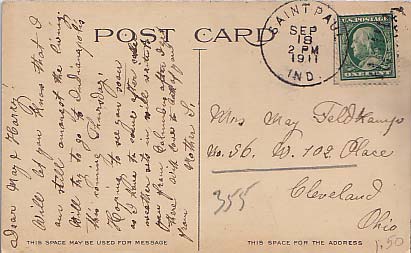 POST CARD
SAINT PAUL
SEP
18
2 PM
1911
IND.
U.S. POSTAGE
ONE CENT
Dear May & Harry:
Will let you know that I
am still amongst the living.
Will try to go to Indianapolis
this coming Thursday.
Hoping to see you soon
as I have to leave after
mother gets in will write to
you from Columbus after I get
there. With love to both of you
from Mother S.
Mrs May Feldkamp
No. 56. W. 102. Place
Cleveland
Ohio
355
1.50
THIS SPACE MAY BE USED FOR MESSAGE
THIS SPACE IS FOR THE ADDRESS